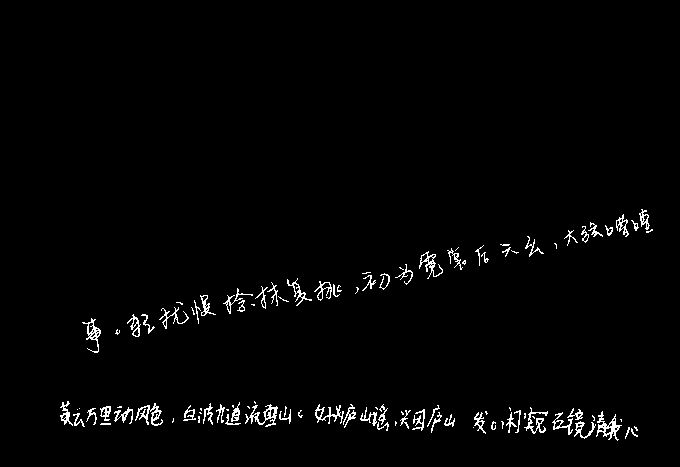 事。轻拢慢捻抹复挑,初为霓裳后六幺,大弦嘈嘈
黄云万里动风色,白波九道流雪山。好为庐山谣,兴因庐山发。闲窥石镜清我心